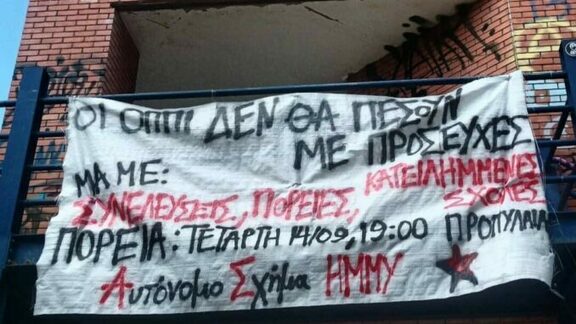 ΟΙ ΟΠΠΙ ΔΕΝ ΘΑ ΠΕΣΟΥΝ
ΜΕ ΠΡΟΣΕΥΧΕΣ
ΜΑ ΜΕ:
ΣΥΝΕΛΕΥΣΕΙΣ, ΠΟΡΕΙΕΣ, ΚΑΤΕΙΛΗΜΜΕΝΕΣ
ΣΧΟΛΕΣ
ΠΟΡΕΙΑ: ΤΕΤΑΡΤΗ 14/09, 19:00 ΠΡΟΠΥΛΑΙΑ
Αυτόνομο Σχήμα ΗΜΜΥ